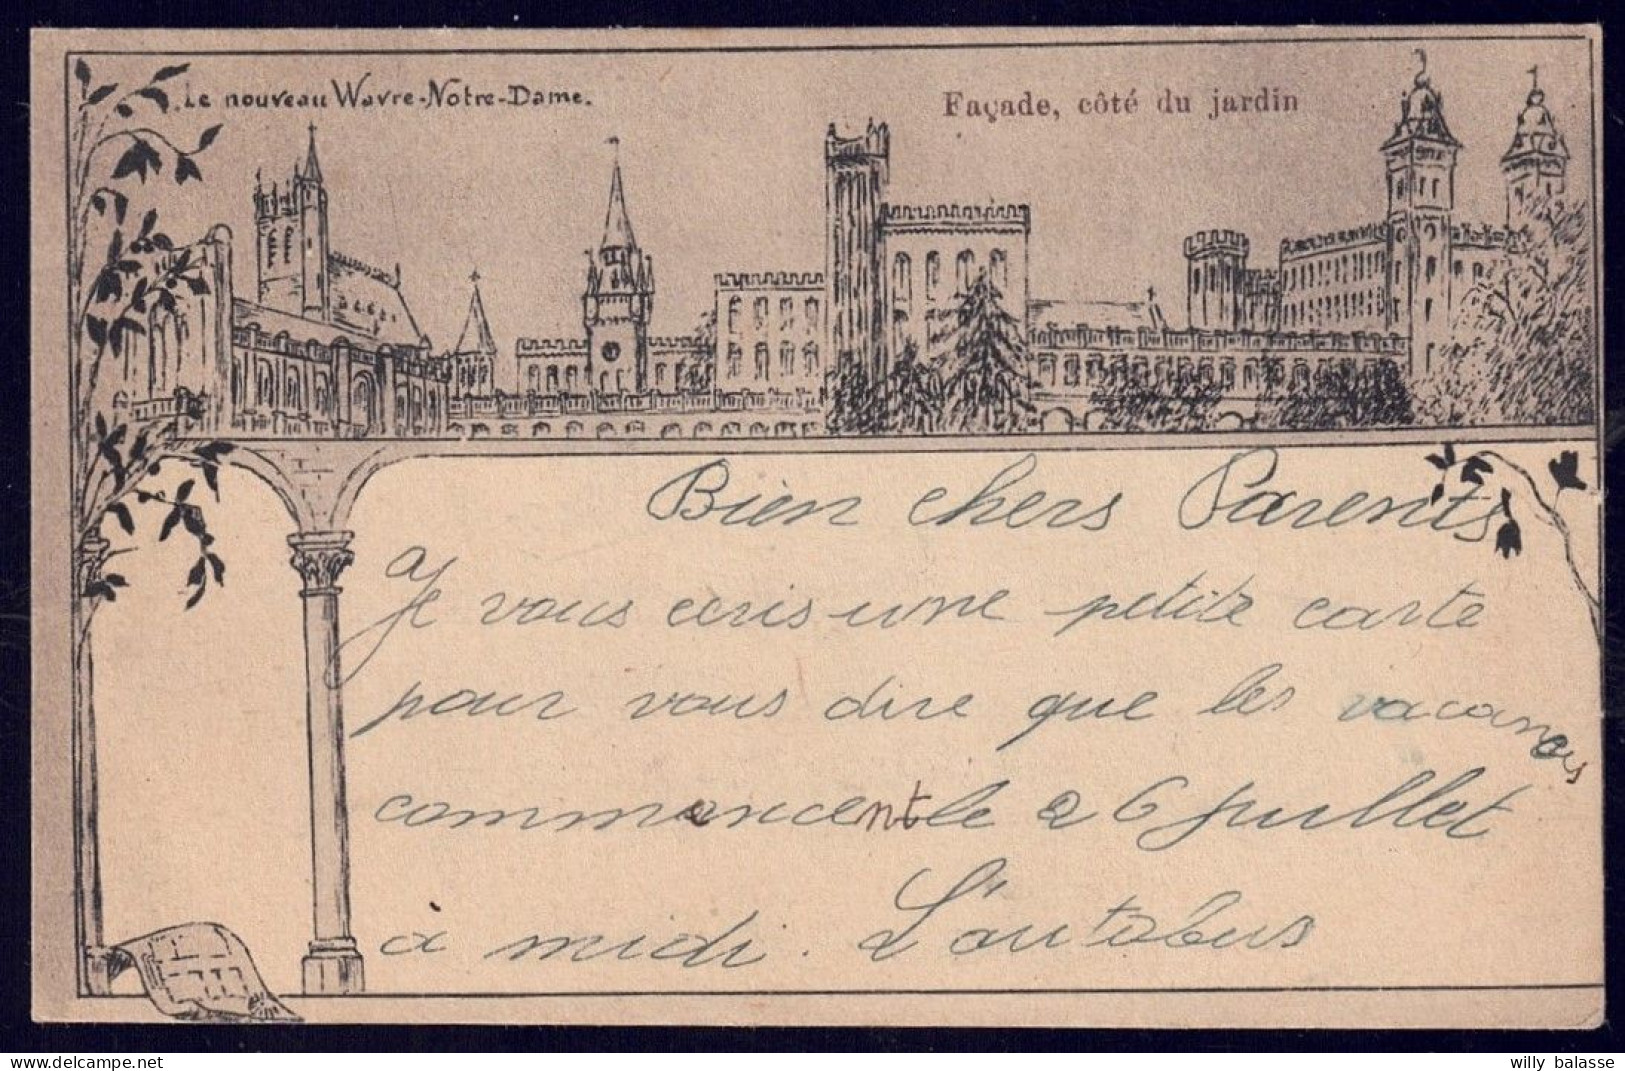 Le nouveau Wavre-Notre-Dame.
Façade, côté du jardin
Bien chers Parents
Je vous ecris une petite carte
pour vous dire que les vacances
commencent le 26 juillet
à midi. L'autobus
willy balasse